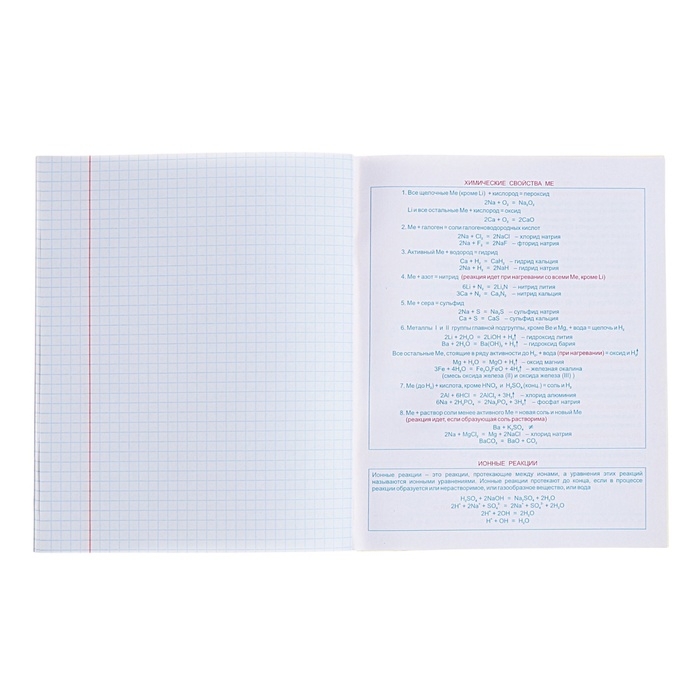 ХИМИЧЕСКИЕ СВОЙСТВА МЕ
1. Все щелочные Ме (кроме Li) + кислород = пероксид
2Na + O₂ = Na₂O₂
Li и все остальные Ме + кислород = оксид
2Ca + O₂ = 2CaO
2. Ме + галоген = соли галогеноводородных кислот
2Na + Cl₂ = 2NaCl – хлорид натрия
2Na + F₂ = 2NaF – фторид натрия
3. Активный Ме + водород = гидрид
Ca + H₂ = CaH₂ – гидрид кальция
2Na + H₂ = 2NaH – гидрид натрия
4. Ме + азот = нитрид (реакция идет при нагревании со всеми Ме, кроме Li)
6Li + N₂ = 2Li₃N – нитрид лития
3Ca + N₂ = Ca₃N₂ – нитрид кальция
5. Ме + сера = сульфид
2Na + S = Na₂S – сульфид натрия
Ca + S = CaS – сульфид кальция
6. Металлы I и II группы главной подгруппы, кроме Be и Mg, + вода = щелочь и H₂
2Li + 2H₂O = 2LiOH + H₂↑ – гидроксид лития
Ba + 2H₂O = Ba(OH)₂ + H₂↑ – гидроксид бария
Все остальные Ме, стоящие в ряду активности до H₂, + вода (при нагревании) = оксид и H₂↑
Mg + H₂O = MgO + H₂↑ – оксид магния
3Fe + 4H₂O = Fe₂O₃FeO + 4H₂↑ – железная окалина
(смесь оксида железа (II) и оксида железа (III) )
7. Ме (до H₂) + кислота, кроме HNO₃ и H₂SO₄ (конц.) = соль и H₂
2Al + 6HCl = 2AlCl₃ + 3H₂↑ – хлорид алюминия
6Na + 2H₃PO₄ = 2Na₃PO₄ + 3H₂↑ – фосфат натрия
8. Ме + раствор соли менее активного Ме = новая соль и новый Ме
(реакция идет, если образующая соль растворима)
Ba + K₂SO₄ ≠
2Na + MgCl₂ = Mg + 2NaCl – хлорид натрия
BaCO₃ = BaO + CO₂
ИОННЫЕ РЕАКЦИИ
Ионные реакции – это реакции, протекающие между ионами, а уравнения этих реакций
называются ионными уравнениями. Ионные реакции протекают до конца, если в процессе
реакции образуется или нерастворимое, или газообразное вещество, или вода
H₂SO₄ + 2NaOH = Na₂SO₄ + 2H₂O
2H⁺ + 2Na⁺ + SO₄²⁻ = 2Na⁺ + SO₄²⁻ + 2H₂O
2H⁺ + 2OH = 2H₂O
H⁺ + OH = H₂O